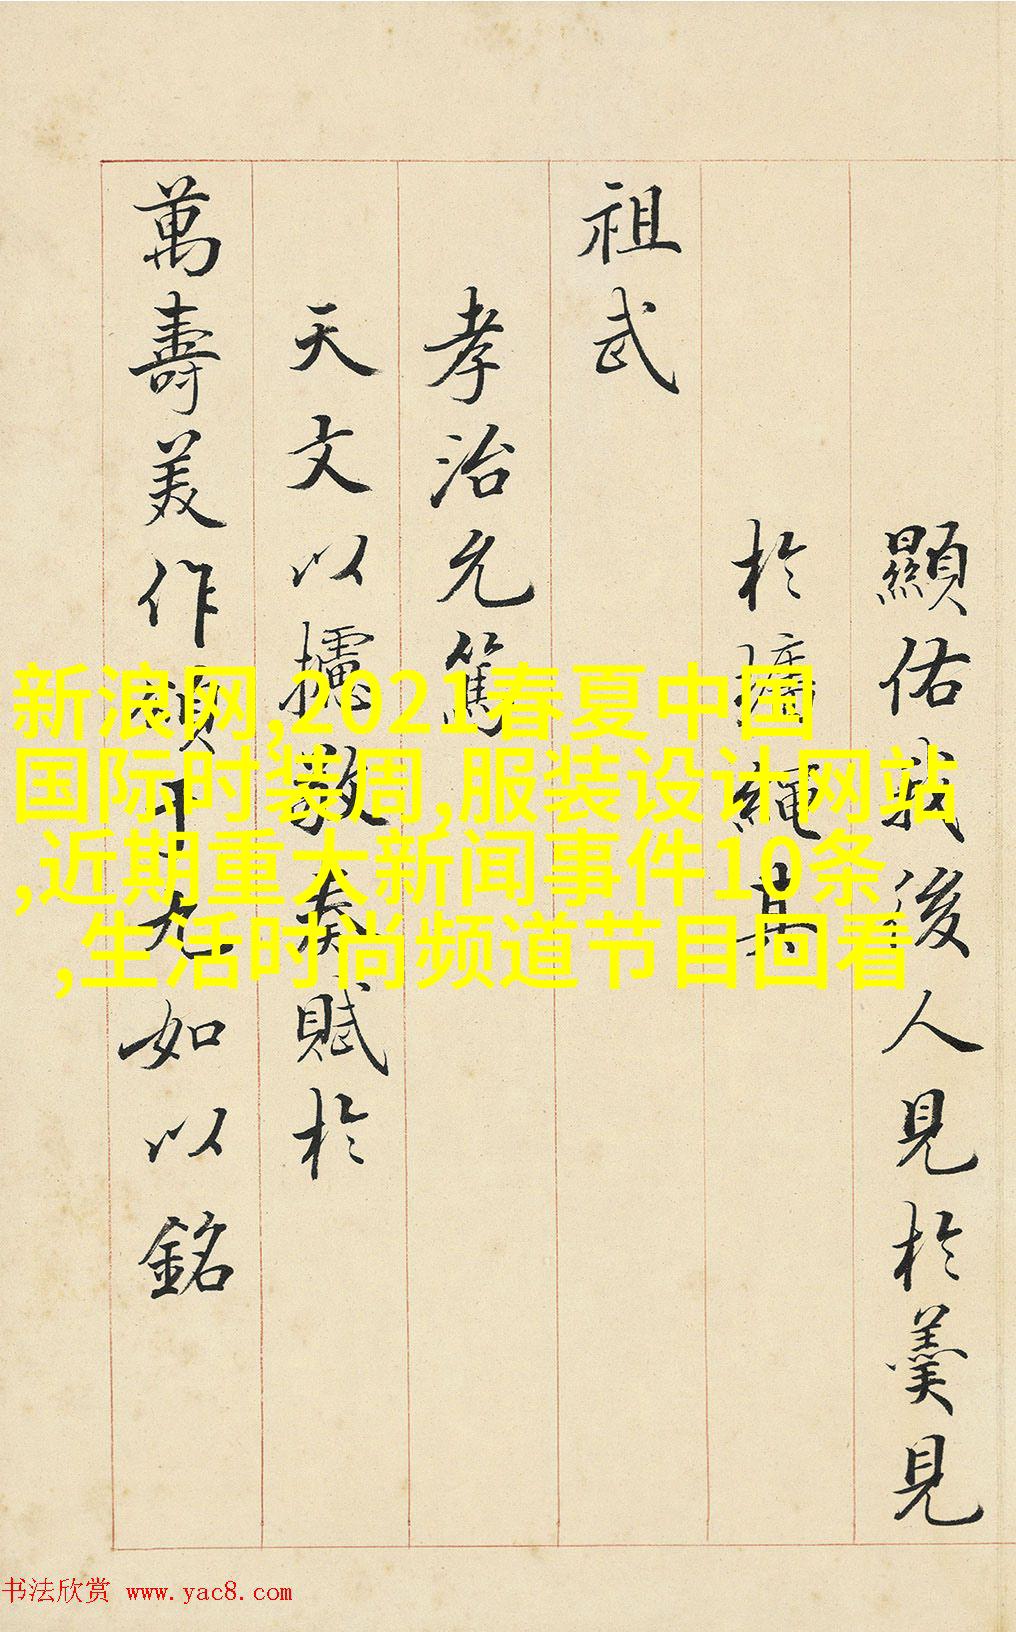 顯佑我後人見於羹見
於牆繩其
祖武
孝治允篤
天文以攄敬奏賦於
萬壽美作頌九如以銘
新浪网,2021春夏中国
国际时装周,服装设计网站
,近期重大新闻事件10条
,生活时尚频道节目回看
书法欣赏 www.yac8.com